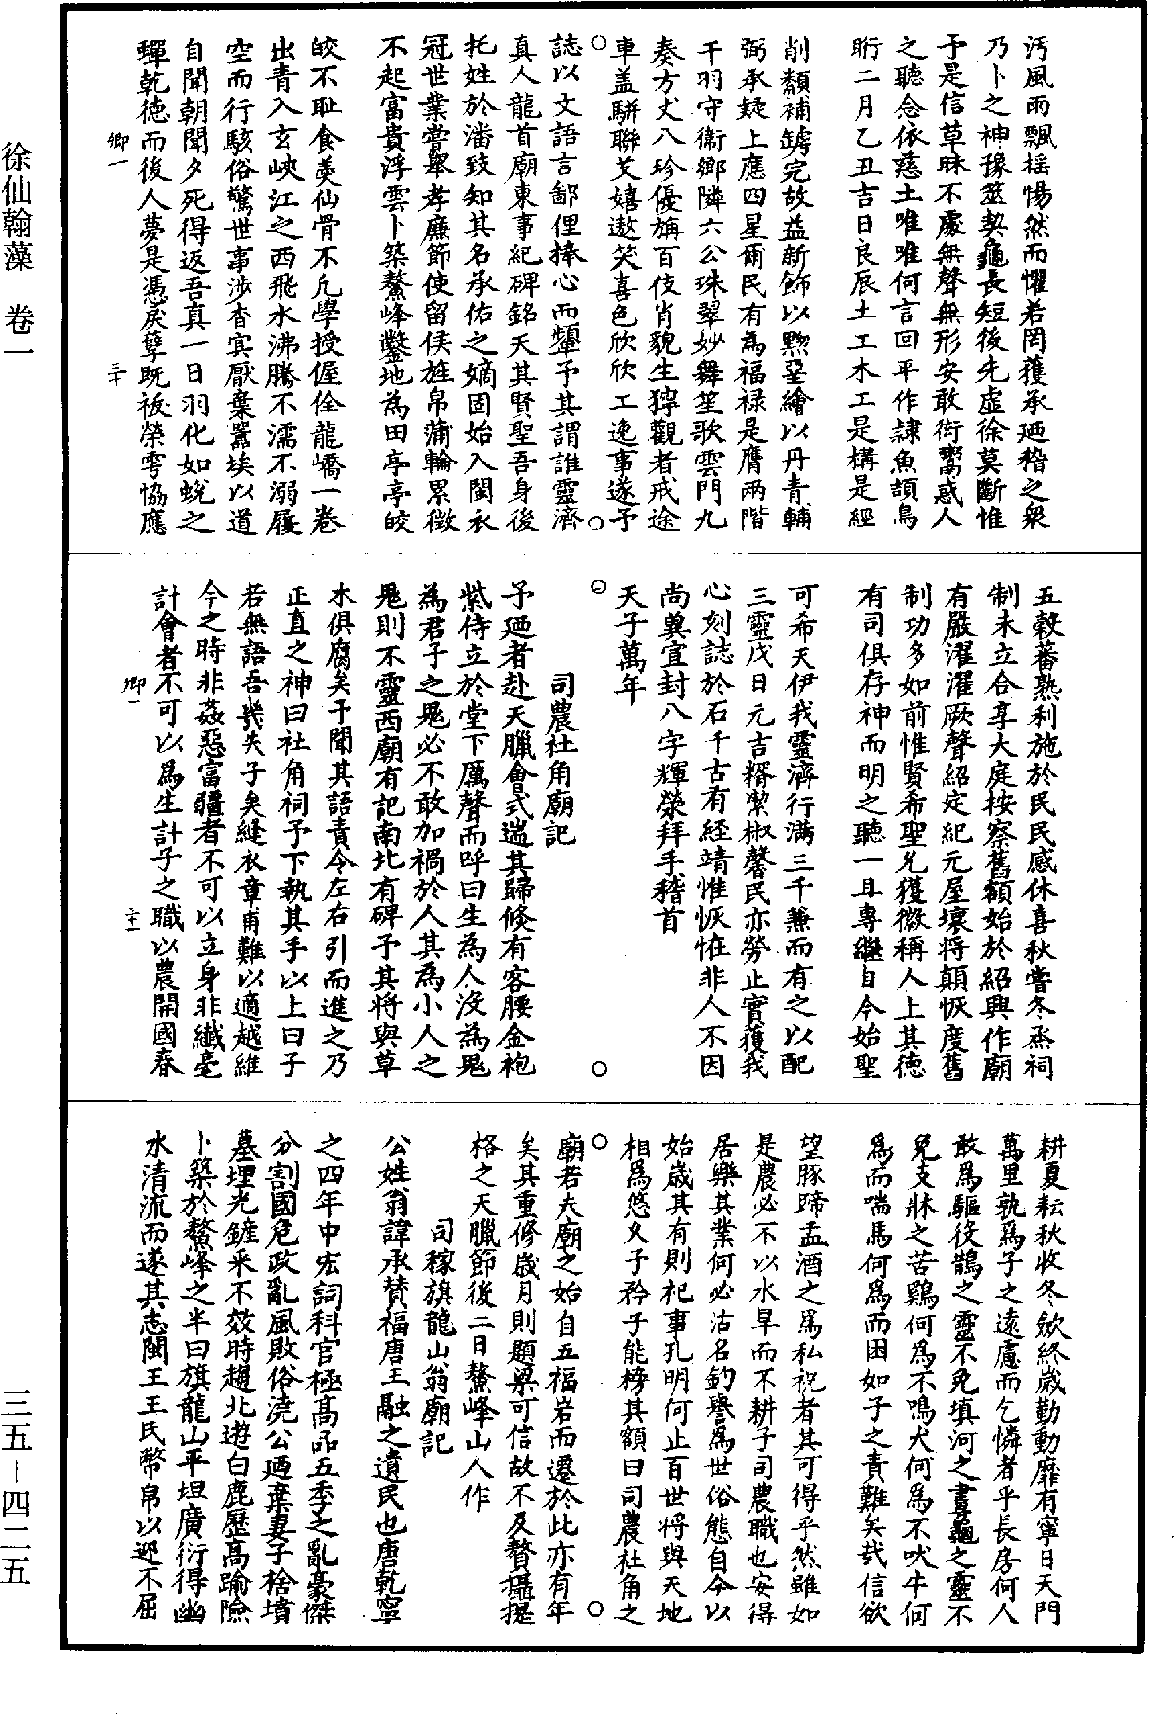 污風雨飄揺惕然而懼若罔獲承廼稽之衆
乃卜之神豫筮契龜長短後先虛徐莫斷惟
予是信草昧不處無聲無形安敢衒鬻惑人
之聽念依慈土唯唯何言回平作隷魚頡鳥
䀪二月乙丑吉日良辰土工木工是構是經
削纇補罅完故益新飾以黝堊繪以丹青輔
弼承疑上應四星爾民有為福祿是膺兩階
干羽守衞鄉隣六公珠翠妙舞笙歌雲門九
奏方丈八珍優旃百伎肖貌生獰觀者戒途
車盖駢聯艾嬉遨笑喜色欣欣工逸事遂予
誌以文語言鄙俚捧心而顰予其謂誰靈濟
真人龍首廟東事紀碑銘天其賢聖吾身後
托姓於潘致知其名承佑之嫡固始入閩永
冠世業嘗舉孝廉節使留侯旌帛蒲輪累徵
不起富貴浮雲卜築鰲峰鑿地為田亭亭皎
皎不耻食羙仙骨不凡學授偓佺龍嶠一卷
出青入玄峽江之西飛水沸騰不濡不溺履
空而行駭俗驚世事涉杳㝠厭棄囂埃以道
自聞朝聞夕死得返吾真一日羽化如蛻之
蟬乾德而後人夢是憑戾孽旣祓榮雩恊應
五穀蕃熟利施於民民感休喜秋嘗冬烝祠
制未立合享大庭按察舊額始於紹興作廟
有嚴濯濯厥聲紹定紀元屋壞将顛恢度舊
制功多如前惟賢希聖允獲徽稱人上其德
有司俱存神而明之聽一且專繼自今始聖
可希天伊我靈濟行滿三千兼而有之以配
三靈戊日元吉糈潔椒馨民亦勞止實獲我
心刻誌於石千古有經靖惟恢恠非人不因
尚冀宜封八字輝榮拜手稽首
天子萬年
司農社角廟記
予廼者赴天臘會弍遄其歸倐有客腰金袍
紫侍立於堂下厲聲而呼曰生為人沒為鬼
為君子之鬼必不敢加禍於人其為小人之
鬼則不靈西廟有記南北有碑予其将與草
木俱腐矣予聞其語責令左右引而進之乃
正直之神曰社角祠予下執其手以上曰子
若無語吾幾失子矣縫衣章甫難以適越維
今之時非姦惡富疆者不可以立身非纖毫
計會者不可以為生計子之職以農開國春
耕夏耘秋收冬斂終歲勤動靡有寧日天門
萬里孰為子之遠慮而乞憐者乎長房何人
敢為驅役鵲之靈不免填河之晝龜之靈不
免支牀之苦鷄何為不鳴犬何為不吠牛何
為而喘馬何為而困如子之責難矣哉信欲
望豚蹄盂酒之為私祝者其可得乎然雖如
是農必不以水旱而不耕子司農職也安得
居樂其業何必沽名釣譽為世俗態自今以
始歲其有則祀事孔明何止百世将與天地
相為悠久子矜子能榜其額曰司農社角之
廟若夫廟之始自五福岩而遷於此亦有年
矣其重修歲月則題梁可信故不及贅攝提
格之天臘節後二日鰲峰山人作
司稼旗龍山翁廟記
公姓翁諱承贊福唐玉融之遺民也唐乾寧
之四年中宏詞科官極髙品五季之亂豪傑
分割國危政亂風敗俗澆公廼棄妻子捨墳
墓埋光鏟采不效時趨北遊白鹿歷髙踰險
卜築於鰲峰之半曰旗龍山平坦廣衍得幽
水清流而遂其志閩王王氏幣帛以迎不屈
卿一
三十
卿一
三十一
徐仙翰藻　卷一
三五－四二五